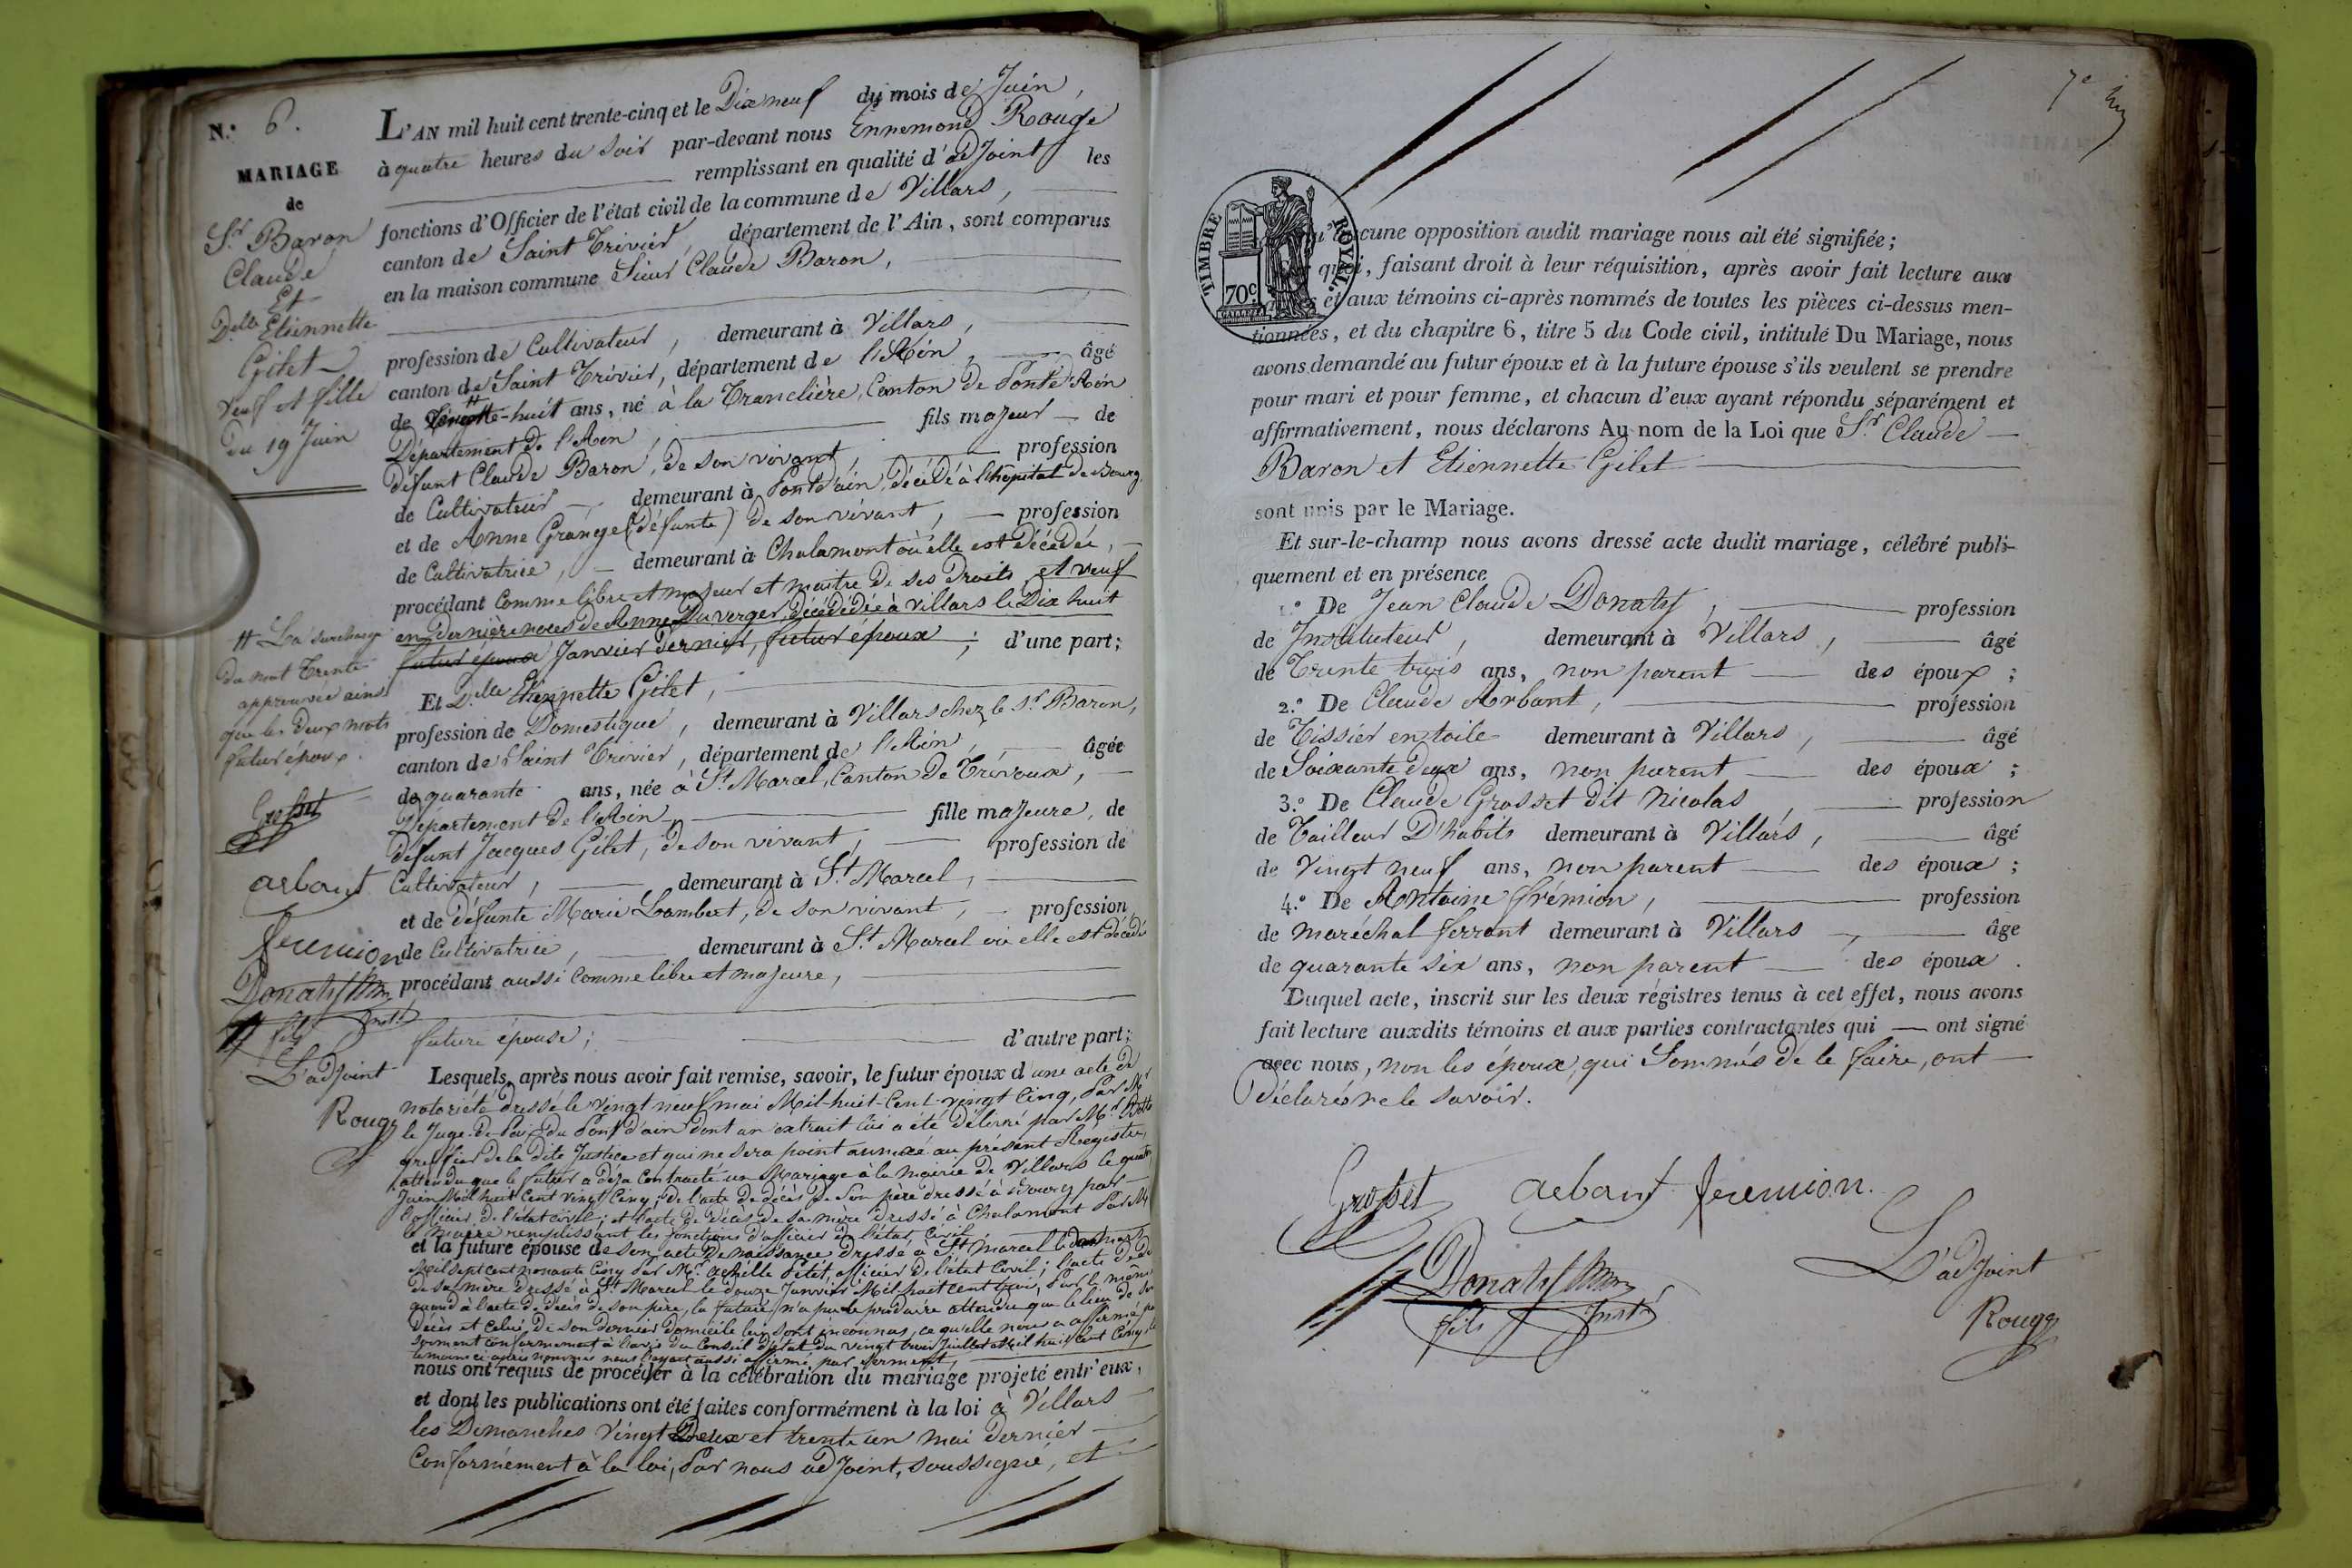 N.° 6.
MARIAGE
de
S.r Baron
Claude
Et
D.elle Etiennette
Gilet
veuf et fille
du 19 Juin
L'AN mil huit cent trente-cinq et le Dix neuf du mois de Juin,
à quatre heures du soir par-devant nous Ennemond Rouge
remplissant en qualité d'adjoint les
fonctions d'Officier de l'état civil de la commune de Villars,
canton de Saint Trivier, département de l'Ain, sont comparus
en la maison commune Sieur Claude Baron,
profession de Cultivateur, demeurant à Villars,
canton de Saint Trivier, département de l'Ain, âgé
de trente-huit ans, né à la Tranclière, Canton de Pont d'Ain
Département de l'Ain, fils majeur de
défunt Claude Baron, de son vivant, profession
de Cultivateur, demeurant à Pont d'ain, décédé à l'hôpital de Bourg
et de Anne Grange (défunte) de son vivant, profession
de Cultivatrice, demeurant à Chalamont où elle est décédée,
procédant comme libre et majeur et maitre de ses droits, et veuf
en dernière noces de Anne Duverger, décédédée à Villars le Dix huit
futur époux Janvier dernier, futur époux; d'une part;
Et D.elle Etiennette Gilet,
profession de Domestique, demeurant à Villars chez le S.r Baron,
canton de Saint Trivier, département de l'Ain, âgée
de quarante ans, née à S.t Marcel, Canton de Trévoux,
Département de l'Ain fille majeure, de
défunt Jacques Gilet, de son vivant, profession de
Cultivateur, demeurant à S.t Marcel,
et de défunte Marie Lambert, de son vivant, profession
de Cultivatrice, demeurant à S.t Marcel où elle est décédé
procédant aussi comme libre et majeure,
future épouse; d'autre part;
Lesquels, après nous avoir fait remise, savoir, le futur époux d'une acte de
notoriété dressé le vingt neuf mai Mil-huit-Cent-vingt Cinq, Par Mr
le Juge-De-Paix du Pont d'ain dont un extrait lui a été délivré par Mr
greffier de la dite Justice et qui ne sera point annexé au présent Registre,
attendu que le futur a déja Contracté un Mariage à la mairie de Villars le quatre
Juin Mil huit Cent vingt Cinq; de l'acte de décès de son père dressé à Bourg par
l'officier de l'état civil; et l'acte de décès de sa mère dressé à Chalamont Par Mr
le Maire remplissant les fonctions d'officier de l'état civil
et la future épouse de son acte de naissance dressé à St marcel le mars
Mil sept cent nonante Cinq Par Mr Achille Petet, officier de l'état Civil; l'acte de dé
de sa mère dressé à St Marcel le douze Janvier Mil huit cent trois, Par le même
quand à l'acte de décès de son père, la future n'a pu le produire attendu que le lieu de son
décès et celui de son dernier domicile lui sont inconnus, ce qu'elle nous a affirmé par
serment conformément à l'avis du Conseil d'état du vingt trois Juillet Mil huit cent Cinq, les
témoins ci-après nommés nous l'ayant aussi affirmé par serment,
nous ont requis de procéder à la célébration du mariage projeté entr'eux,
et dont les publications ont été faites conformément à la loi à Villars
les Dimanches vingt Deux et trente un mai dernier
Conformément à la loi, Par nous adjoint, soussigné, et
# La surcharge
du mot Trente
approuvée ainsi
que les deux mots
futur époux.
Grosset
arbant
fremion
Donat
fils inst.
L'adjoint
Rouge
TIMBRE ROYAL.
70c
7e
qu'aucune opposition audit mariage nous ait été signifiée;
quoi, faisant droit à leur réquisition, après avoir fait lecture aux
et aux témoins ci-après nommés de toutes les pièces ci-dessus men-
tionnées, et du chapitre 6, titre 5 du Code civil, intitulé Du Mariage, nous
avons demandé au futur époux et à la future épouse s'ils veulent se prendre
pour mari et pour femme, et chacun d'eux ayant répondu séparément et
affirmativement, nous déclarons Au nom de la Loi que S.r Claude
Baron et Etiennette Gilet
sont unis par le Mariage.
Et sur-le-champ nous avons dressé acte dudit mariage, célébré publi-
quement et en présence
1.° De Jean Claude Donat, profession
de Instituteur, demeurant à Villars, âgé
de Trente trois ans, non parent des époux;
2.° De Claude Arbant, profession
de Tissier en toile demeurant à Villars, âgé
de Soixante deux ans, non parent des époux;
3.° De Claude Grosset dit Nicolas, profession
de Tailleur D'habits demeurant à Villars, âgé
de Vingt neuf ans, non parent des époux;
4.° De Antoine frémion, profession
de maréchal ferrant demeurant à Villars, âgé
de quarante six ans, non parent des époux.
Duquel acte, inscrit sur les deux régistres tenus à cet effet, nous avons
fait lecture auxdits témoins et aux parties contractantes qui ont signé
avec nous, non les époux, qui Sommés de le faire, ont
Déclarés ne le savoir.
Grosset arbant fremion.
Donat
fils inst.
L'adjoint
Rouge